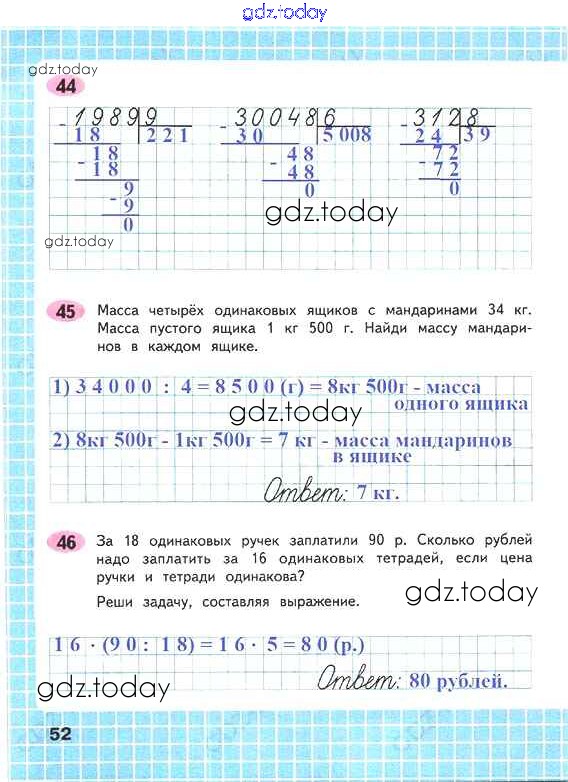 gdz.today
gdz.today
44
1989 9 30048 6 312 8
18 221 30 5 008 24 39
18 48 72
18 48 72
9 0 0
9
0
gdz.today
gdz.today
45 Масса четырёх одинаковых ящиков с мандаринами 34 кг.
Масса пустого ящика 1 кг 500 г. Найди массу мандари-
нов в каждом ящике.
1) 34000 : 4 = 8500 (г) = 8кг 500г - масса
одного ящика
gdz.today
2) 8кг 500г - 1кг 500г = 7 кг - масса мандаринов
в ящике
Ответ: 7 кг.
46 За 18 одинаковых ручек заплатили 90 р. Сколько рублей
надо заплатить за 16 одинаковых тетрадей, если цена
ручки и тетради одинакова?
Реши задачу, составляя выражение.
gdz.today
16 · (90 : 18) = 16 · 5 = 80 (р.)
Ответ: 80 рублей.
gdz.today
52